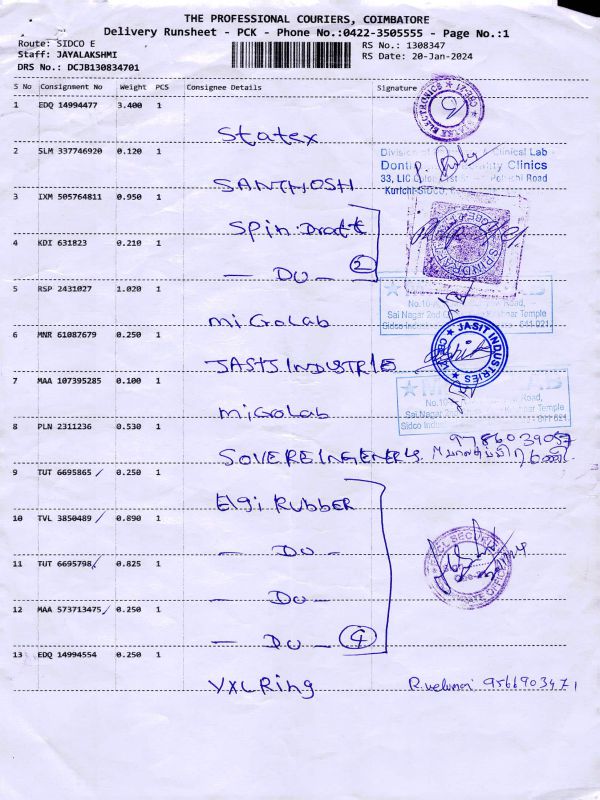 THE PROFESSIONAL COURIERS, COIMBATORE
Delivery Runsheet - PCK - Phone No.:0422-3505555 - Page No.:1
Route: SIDCO E
Staff: JAYALAKSHMI
DRS No.: DCJB130834701
RS No.: 1308347
RS Date: 20-Jan-2024
S No Consignment No Weight PCS Consignee Details Signature
1 EDQ 14994477 3.400 1
Statex
2 SLM 337746920 0.120 1
SANTHOSH
Division of Clinical Lab
Clinics
33, LIC Road
Kurichi-SIDCO,
3 IXM 505764811 0.950 1
Spin Draft
4 KDI 631823 0.210 1
— Du — 2
5 RSP 2431027 1.020 1
MiGoLab
Sai Nagar 2nd Temple
Sidco 641 021.
6 MNR 61087679 0.250 1
JASJS INDUSTRIE
JASIT INDUSTRIES
7 MAA 107395285 0.100 1
MiGoLab
Sai Nagar Temple
Sidco
8 PLN 2311236 0.530 1
SOVEREINGENERLS
9786039057
9 TUT 6695865 0.250 1
Elgi Rubber
10 TVL 3850489 0.890 1
— Du —
11 TUT 6695798 0.825 1
— Du —
12 MAA 573713475 0.250 1
— Du — 4
13 EDQ 14994554 0.250 1
VXL Ring
9566903471